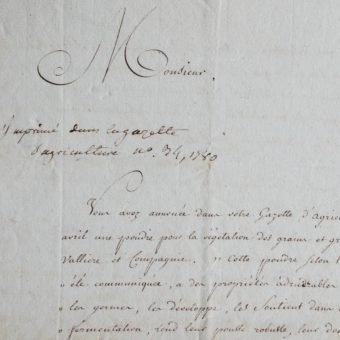 Monsieur
Imprimé dans la gazette
d'agriculture no. 34, 1780
Vous avez annoncé dans votre Gazette d'Agric
avril une poudre pour la végétation des grains et gr
Vallière et Compagnie. " Cette poudre selon l
" été communiqué, a des propriétés admirables
" les germes, les développe, les soutient dans
" fermentation, rend leur pousse robuste, leur don